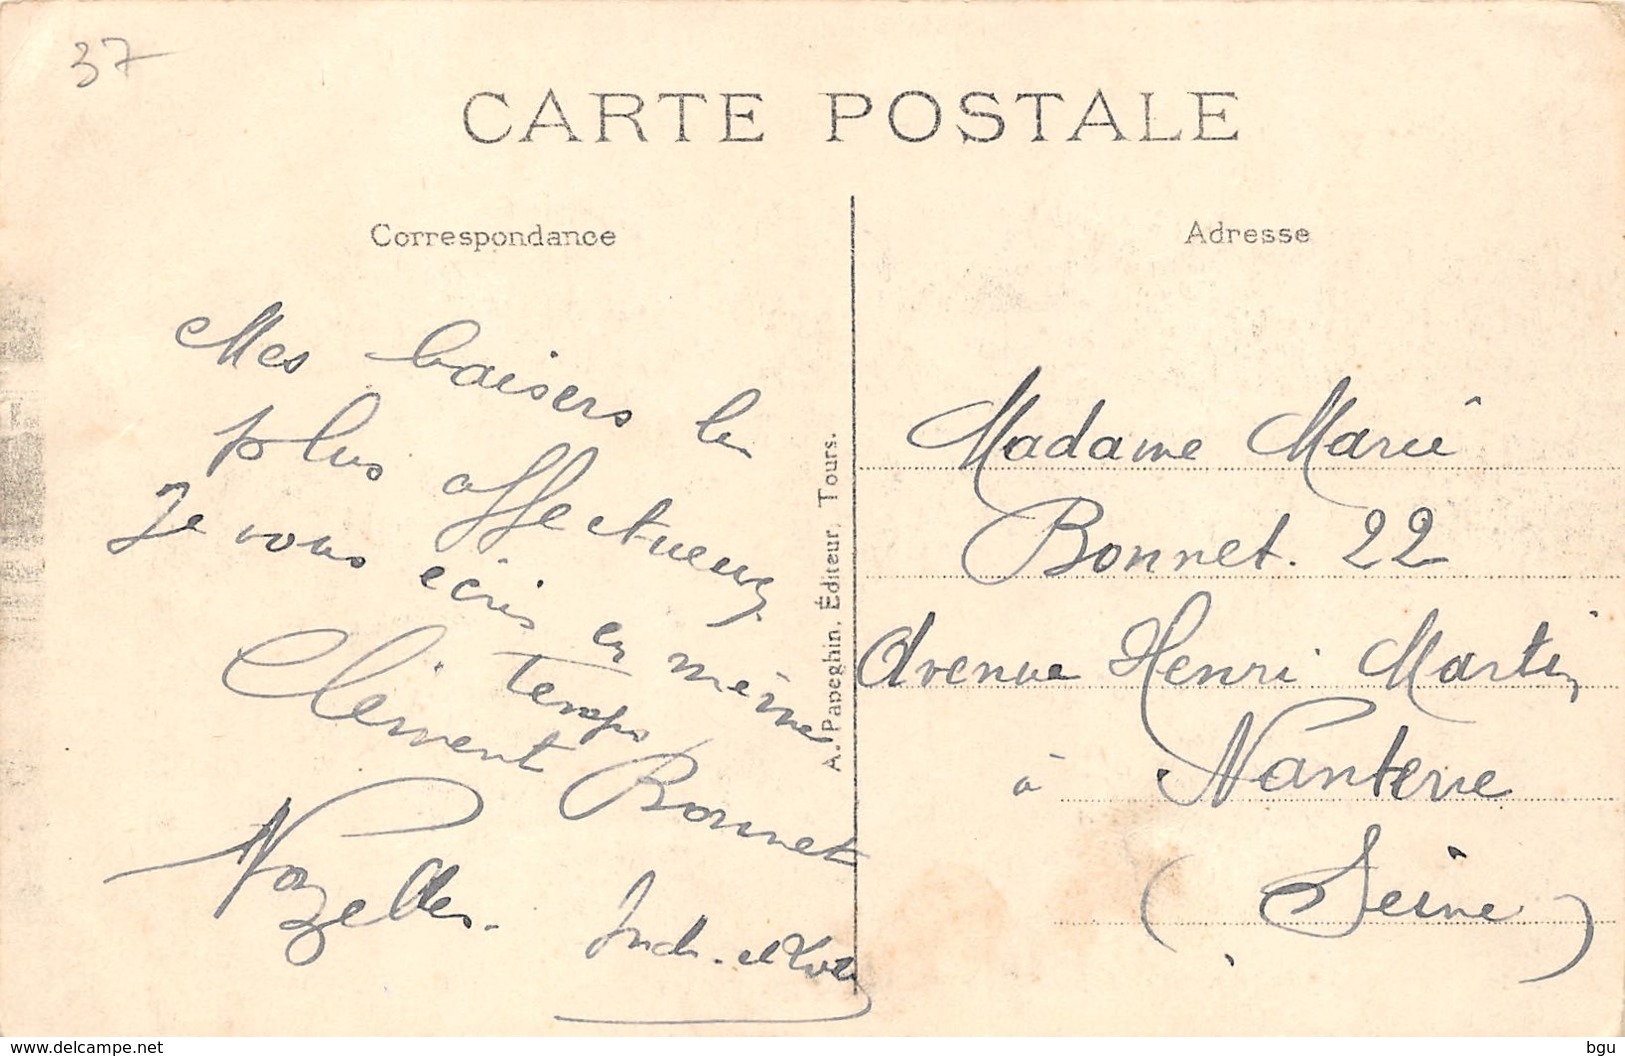 37
CARTE POSTALE
Correspondance
Mes baisers les
plus affectueux
Je vous écris en même
temps
Clément Bonnet
Nozelles. Indr. et Loire
A. Papeghin, Éditeur, Tours.
Adresse
Madame Marie
Bonnet. 22
Avenue Henri Martin
à Nanterre
(Seine)
www.delcampe.net
bgu